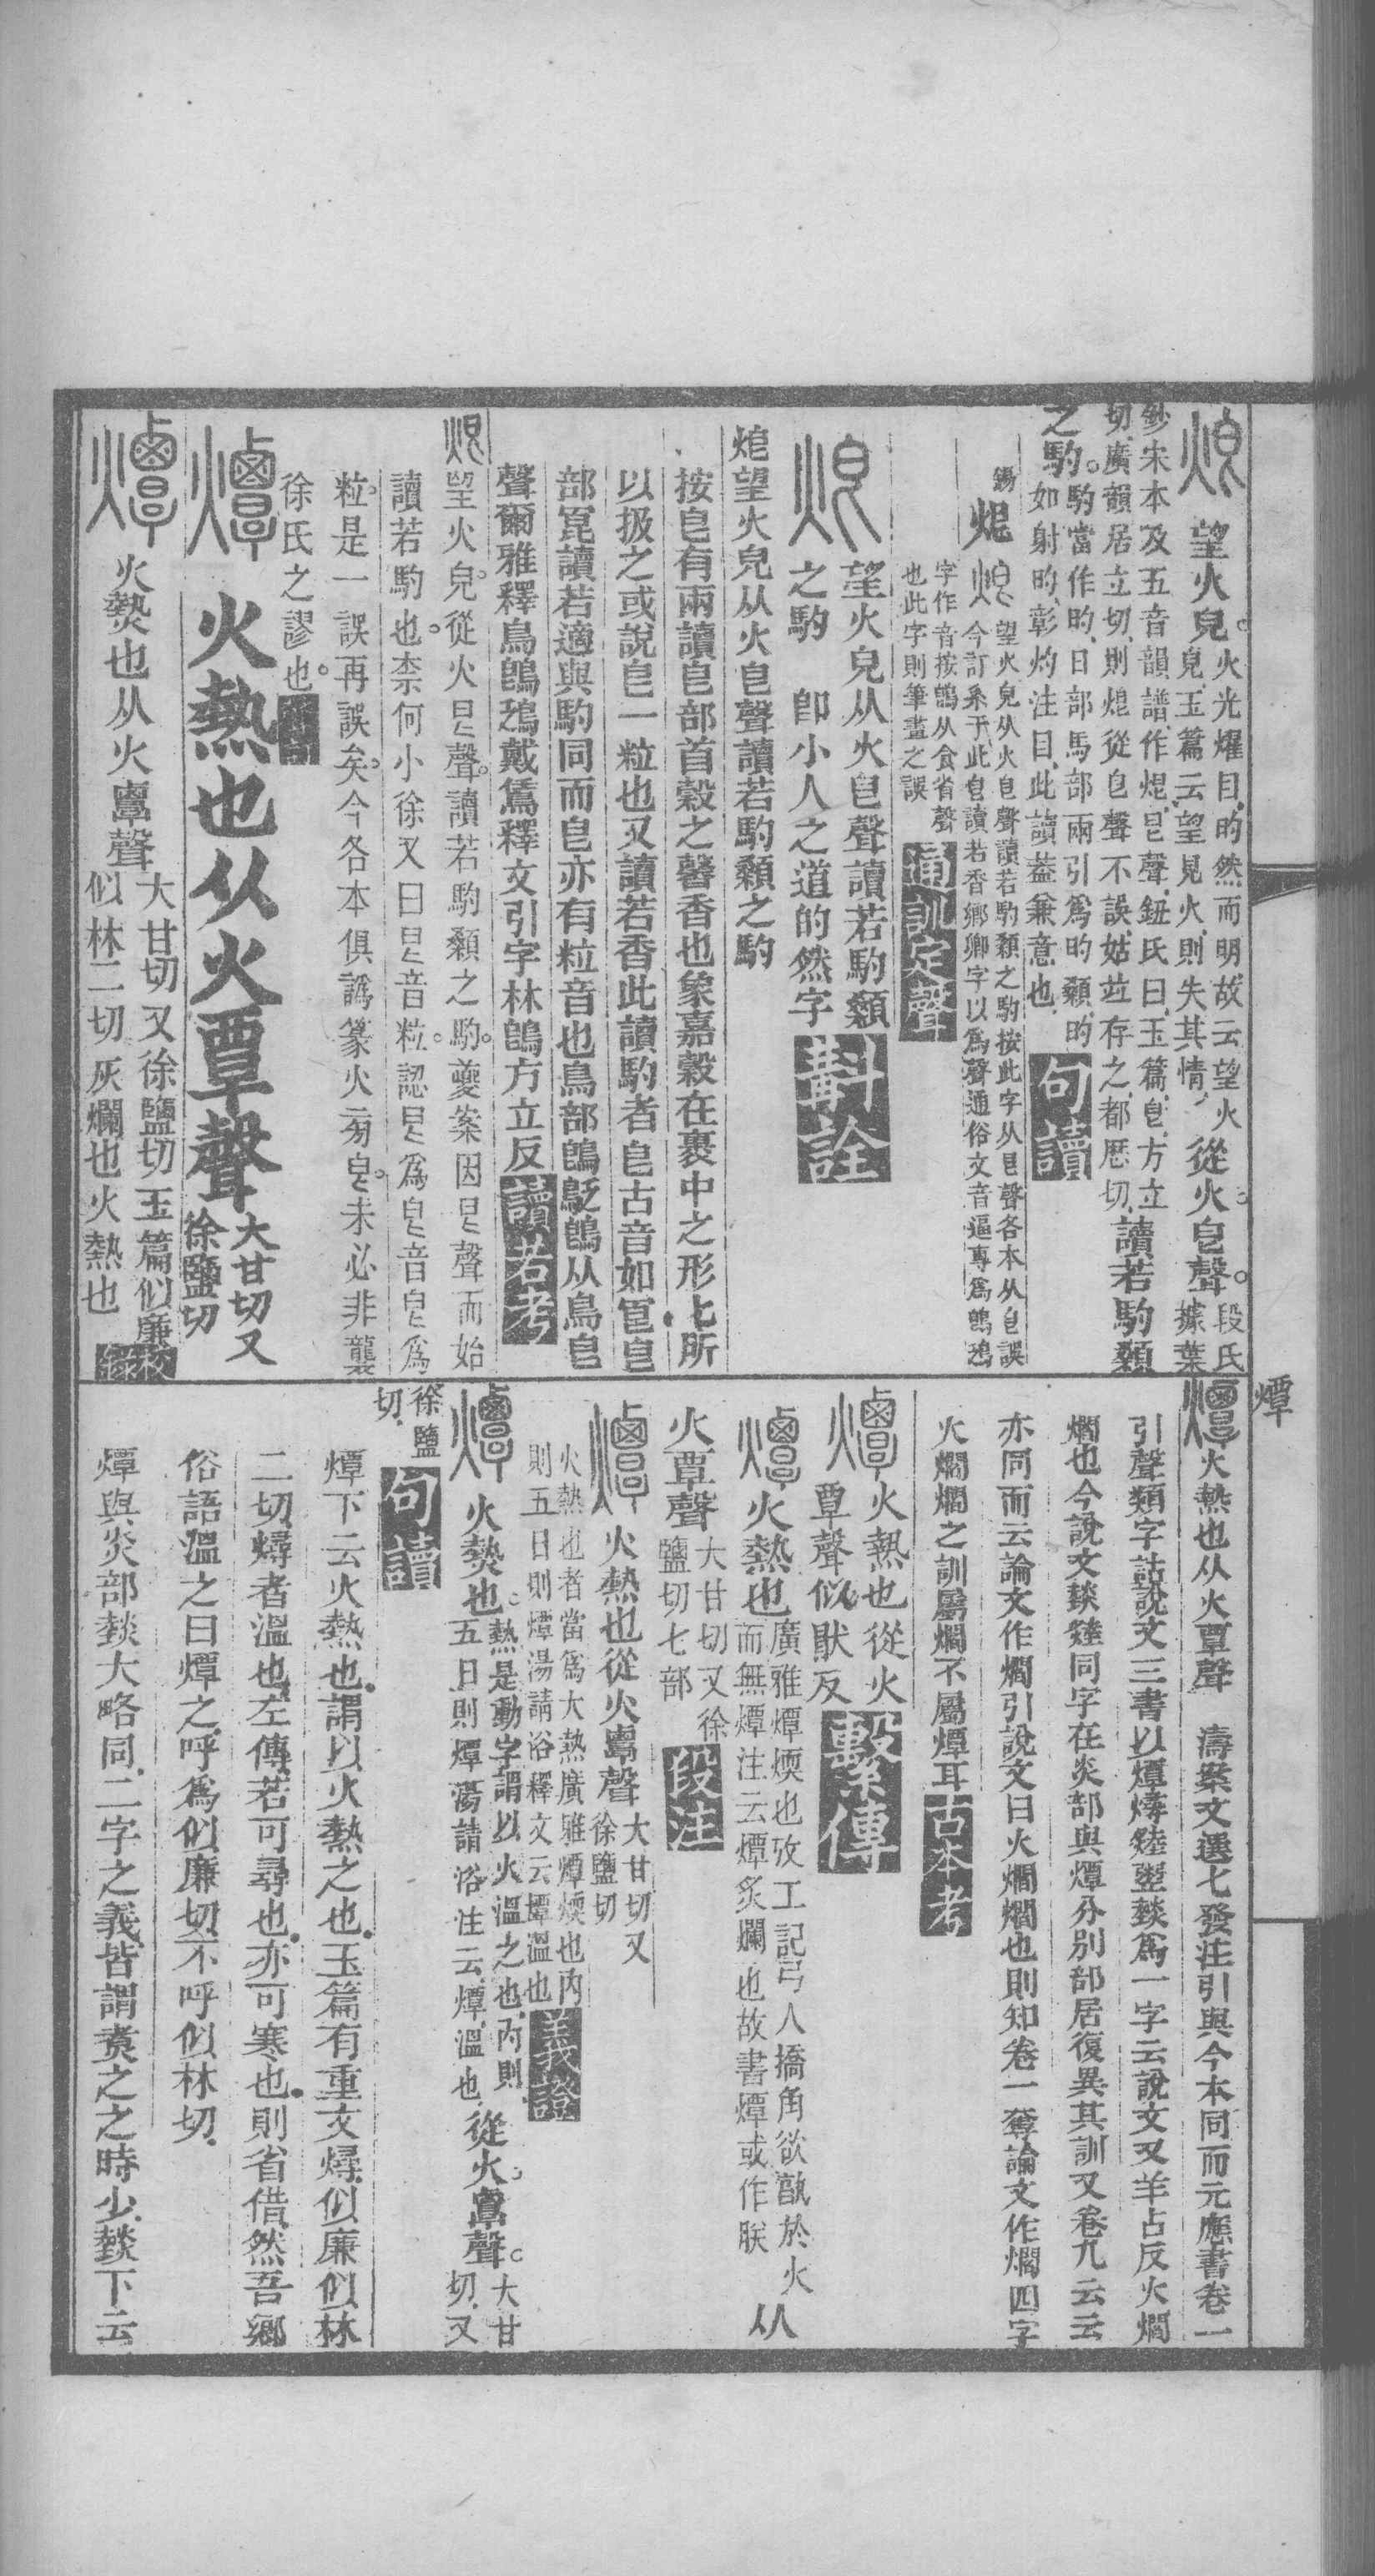 望火皃。火光燿目，旳然而明，故云望火
皃。玉篇云，望見火，則失其情，從火。皀聲。段氏據葉
鈔宋本及五音韻譜作焜，皀聲，鈕氏曰，玉篇，皀，方立
切，廣韻居立切，則熴從皀聲不誤，姑竝存之，都歷切，讀若馰顙
之馰。馰當作旳，日部馬部兩引爲旳顙，旳
如射旳，彰灼注目，此讀葢兼意也 句讀
望火皃从火皀聲讀若馰顙之馰按此字从皀聲各本从皀誤
今訂系于此皀讀若香鄉卿字以爲聲通俗文音逼專爲鵖鴔
字作音按鵖从食省聲
也此字則筆畫之誤 通訓定聲
望火皃从火皀聲讀若馰顙
之馰 卽小人之道的然字 斠詮
望火皃从火皀聲讀若馰顙之馰
按皀有兩讀皀部首穀之馨香也象嘉穀在裹中之形匕所
以扱之或說皀一粒也又讀若香此讀馰者皀古音如冟皀
部冟讀若適與馰同而皀亦有粒音也鳥部鵖鴔鵖从鳥皀
聲爾雅釋鳥鵖鴔戴鵀釋文引字林鵖方立反 讀若考
望火皃。從火皀聲。讀若馰顙之馰。夔案因皀聲而始
讀若馰也。柰何小徐又曰皀音粒。認皀爲皀音皀爲
粒。是一誤再誤矣。今各本俱譌篆火㫄皀。未必非襲
徐氏之謬也。
火熱也从火覃聲 大甘切又徐鹽切
火熱也从火覃聲 大甘切又徐鹽切玉篇似廉
似林二切灰爛也火熱也 校錄
燂
火熱也从火覃聲 濤案文選七發注引與今本同而元應書卷一
引聲類字詁說文三書以燂爲一字云說文又羊占反火爓
爓也今說文同字在炎部與燂分別部居復異其訓又卷九云云
亦同而云論文作爓引說文曰火爓爓也則知卷一奪論文作爓四字
火爓爓之訓屬爓不屬燂耳 古本考
火熱也從火
覃聲似猒反 繫傳
火熱也 廣雅燂煗也攷工記弓人撟角欲孰於火
而無燂注云燂炙爛也故書燂或作朕 从
火覃聲 大甘切又徐
鹽切七部 段注
火熱也從火覃聲 大甘切又
徐鹽切
火熱也者當爲大熱廣雅燂煗也內
則五日則燂湯請浴釋文云燂溫也 義證
火熱也。熱是動字，謂以火溫之也，內則，
五日則燂湯請浴，注云，燂，溫也，從火。覃聲。大甘
切，又
徐鹽
切， 句讀
燂下云火熱也，謂以火熱之也，玉篇有重文燖，似廉似林
二切，燖者溫也，左傳，若可尋也，亦可寒也，則省借，然吾鄉
俗語溫之曰燂之，呼爲似廉切，不呼似林切，
燂與炎部燅大略同，二字之義，皆謂煑之之時少，燅下云